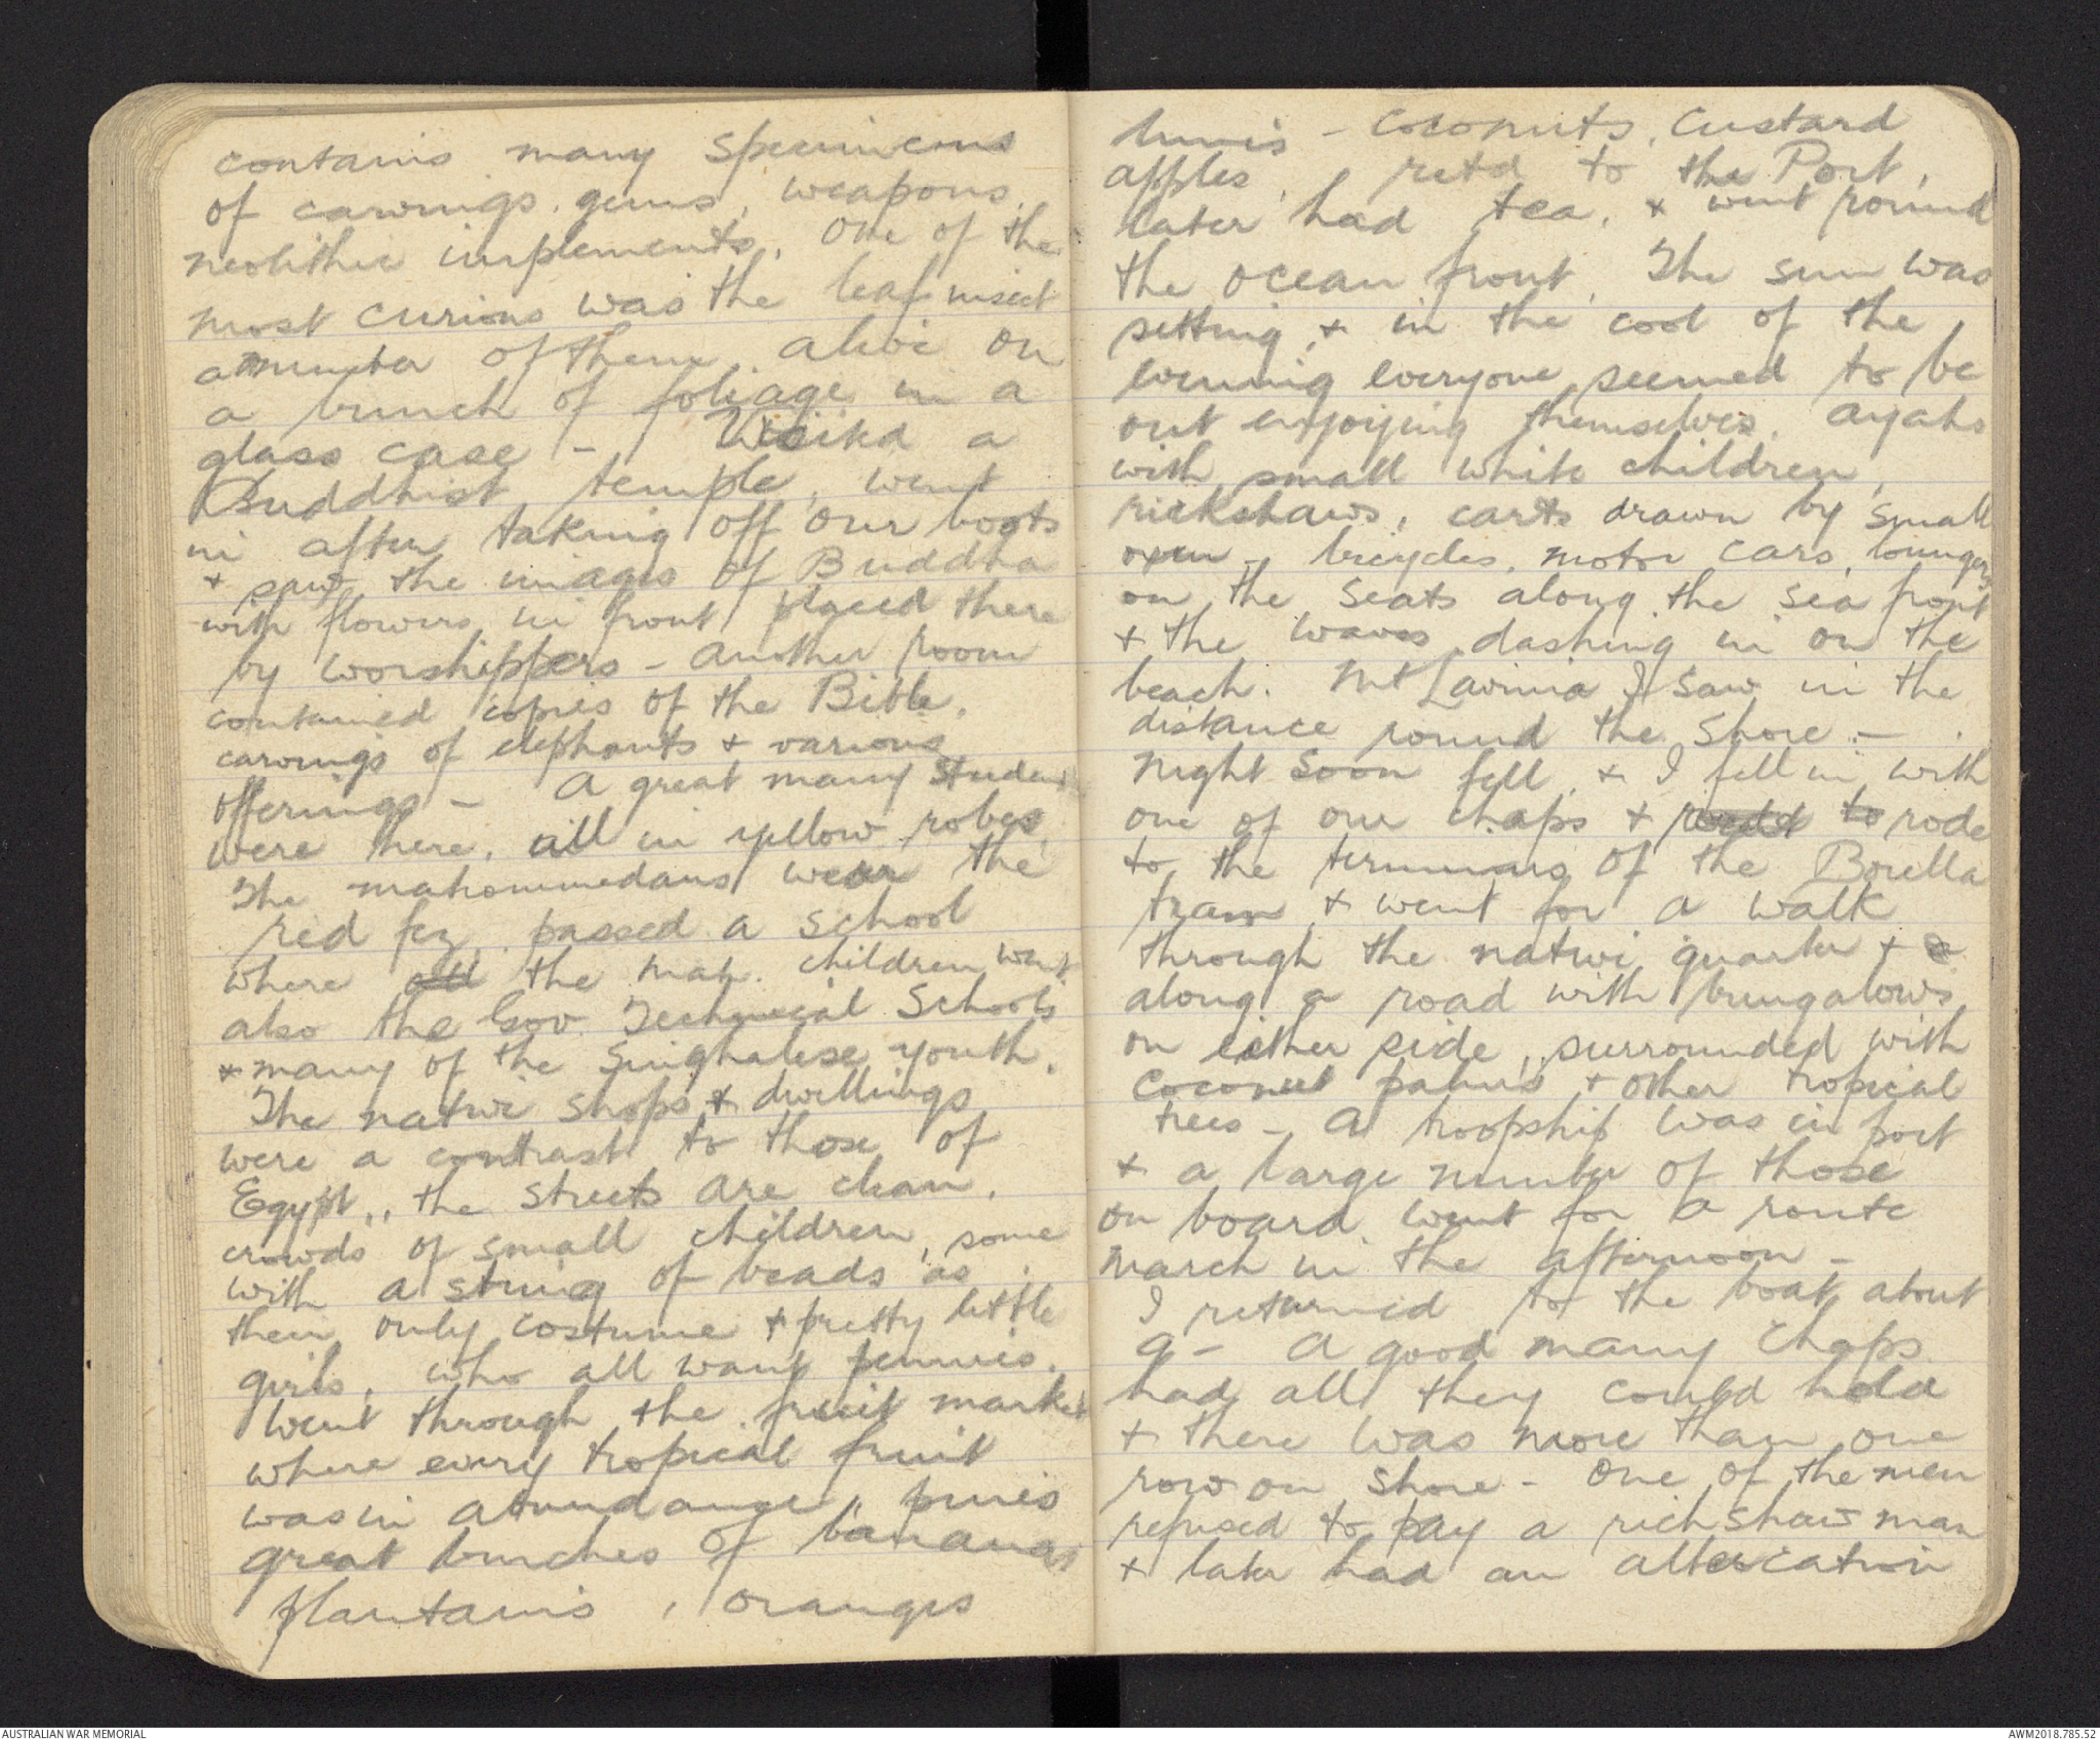 contains many specimens
of carvings, gems, weapons,
neolithic implements. One of the
most curious was the leaf insect
a number of them alive on
a bunch of foliage in a
glass case - Visited a
Buddhist temple, went
in after taking off our boots
+ saw the images of Buddha
with flowers in front placed there
by worshippers - another room
contained copies of the Bible,
carvings of elephants + various
offerings - A great many students
were there, all in yellow robes,
The mahommedans wear the
red fez, passed a school
where all the mah. children went
also the Gov. Technical Schools
+ many of the Singhalese youth.
The native shops + dwellings
were a contrast to those of
Egypt,, the streets are clean,
crowds of small children, some
with a string of beads as
their only costume + pretty little
girls, who all want pennies.
Went through the fruit market
where every tropical fruit
was in abundance,, pines
great bunches of bananas
plantains, oranges
limes - coconuts, custard
apples, retd to the Port,
later had tea, + went round
the ocean front, The sun was
setting, + in the cool of the
evening everyone seemed to be
out enjoying themselves, ayahs
with small white children,
rickshaws, carts drawn by small
oxen - bicycles, motor cars, loungers
on the seats along the sea front
+ the waves dashing in on the
beach. Mt Lavinia I saw in the
distance round the shore -
Night soon fell, + I fell in with
one of our chaps + to rode
to the terminus of the Borella
tram + went for a walk
through the native quarter +
along a road with bungalows
on either side, surrounded with
coconut palms + other tropical
trees - A troopship was in port
+ a large number of those
on board went for a route
march in the afternoon -
I returned to the boat about
9 - A good many chaps
had all they could hold
+ there was more than one
row on shore - One of the men
refused to pay a richshaw man
+ later had an altercation
AUSTRALIAN WAR MEMORIAL
AWM2018.785.52